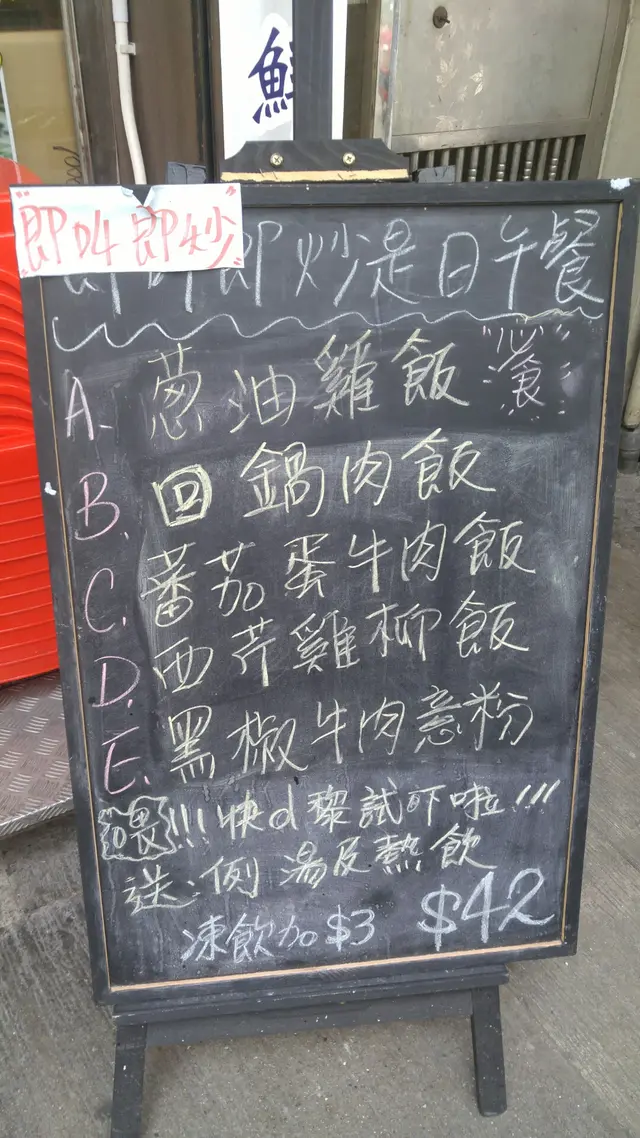 鮮
即叫即炒
即叫即炒是日午餐
A. 蔥油雞飯 心食
B. 回鍋肉飯
C. 蕃茄蛋牛肉飯
D. 西芹雞柳飯
E. 黑椒牛肉意粉
喂!!!快d黎試吓啦!!!
送:例湯及熱飲
凍飲加$3 $42